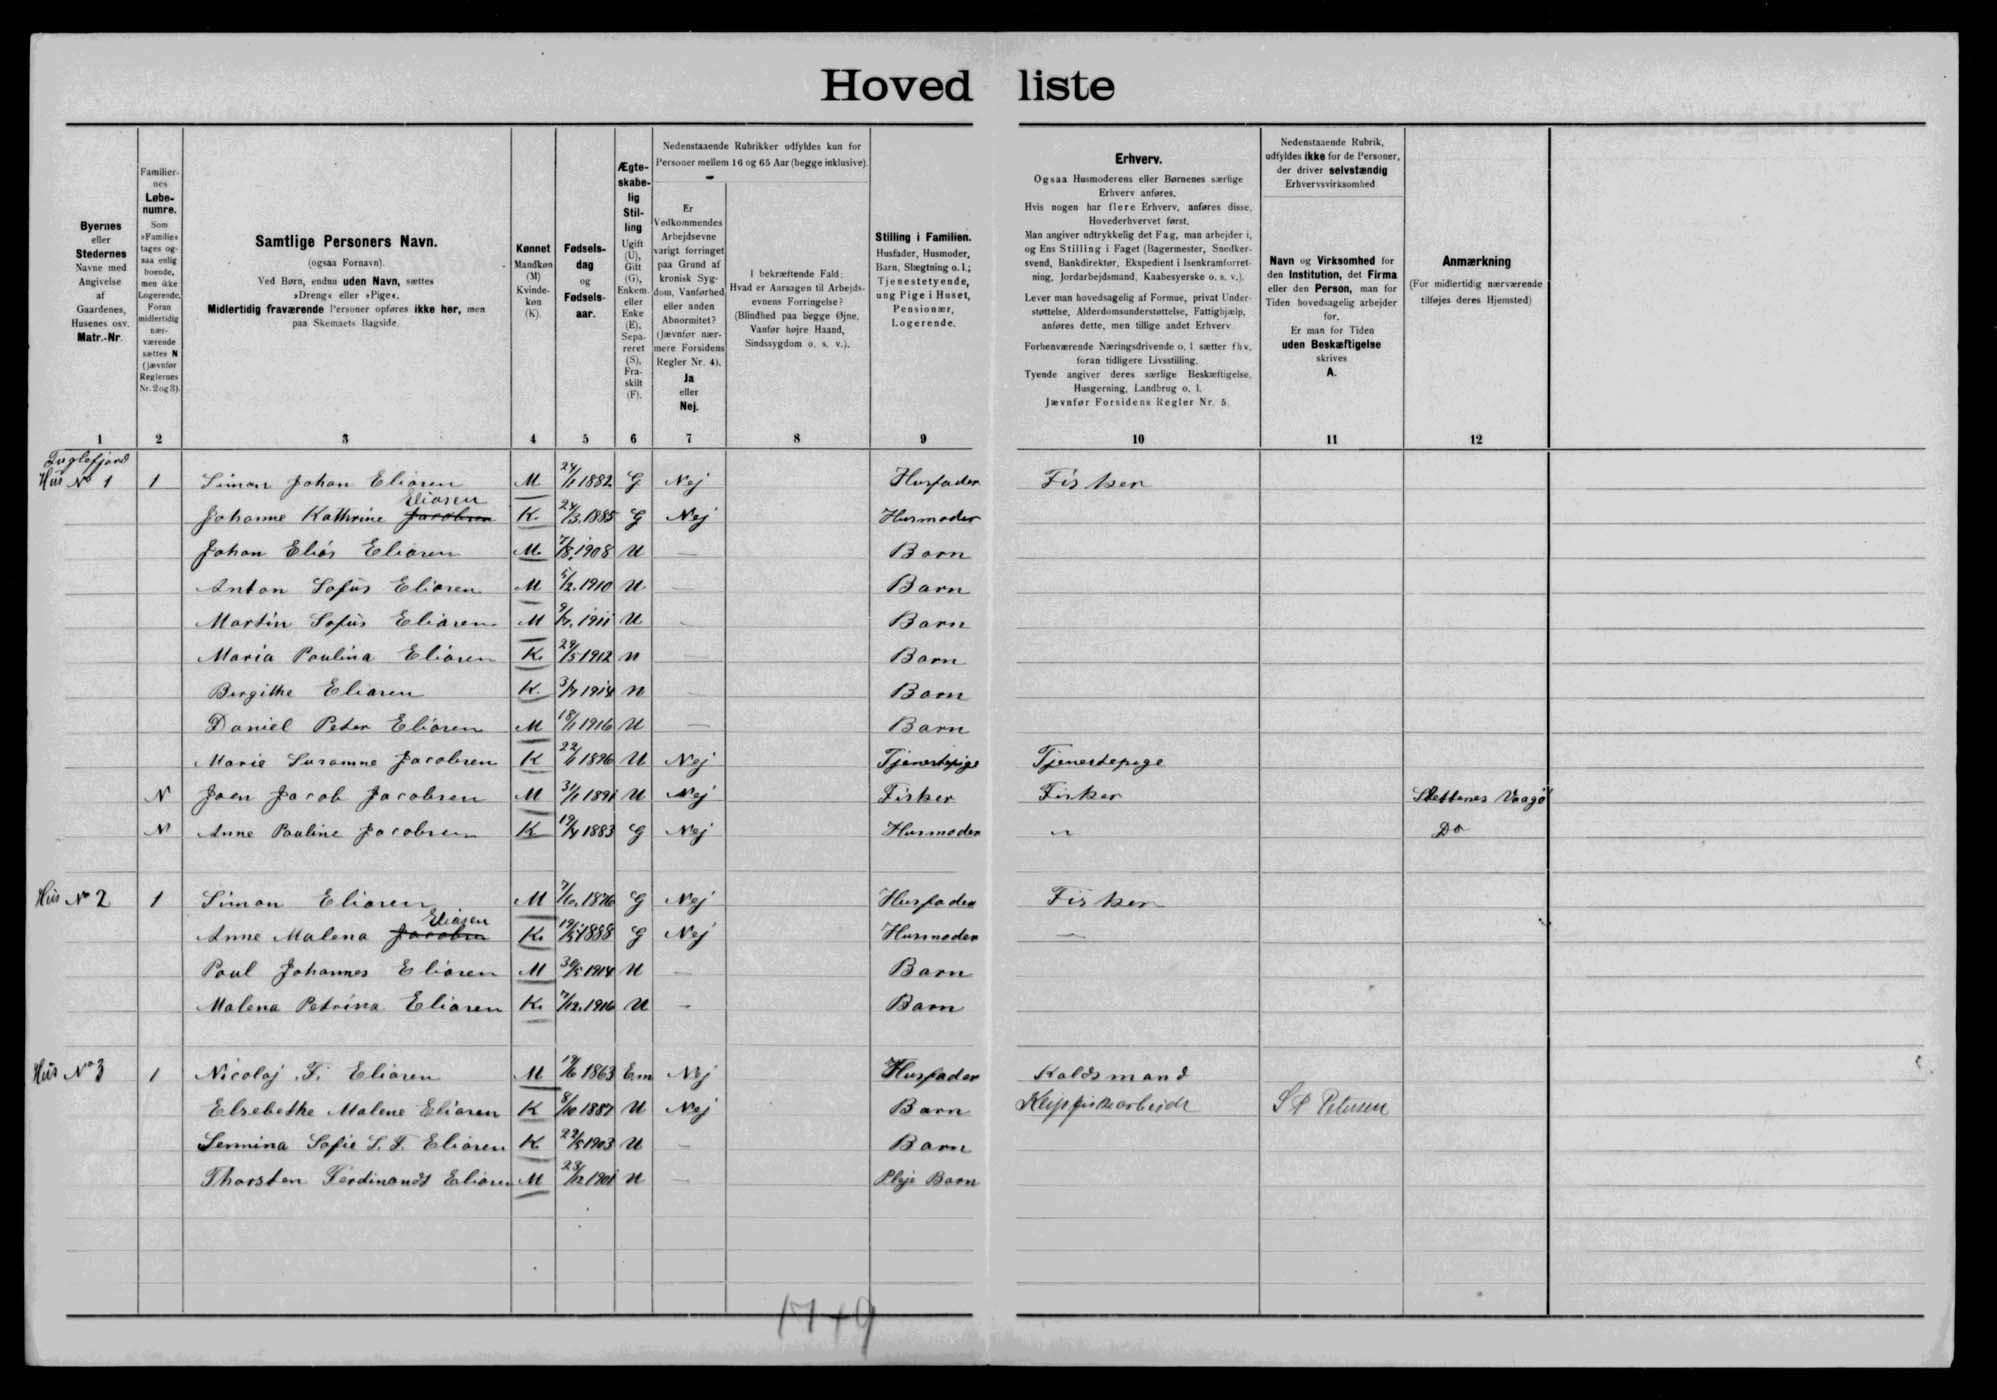 Hovedliste
Byernes
eller
Stedernes
Navne med
Angivelse
af
Gaardenes,
Husenes osv.
Matr.-Nr.
1
Familier-
nes
Løbe-
numre.
Som
»Familie«
tages og-
saa enlig
boende,
men ikke
Logerende.
Foran
midlertidig
nær-
værende
sættes N
(jævnfør
Reglernes
Nr. 2 og 3).
2
Samtlige Personers Navn.
(ogsaa Fornavn).
Ved Børn, endnu uden Navn, sættes
»Dreng« eller »Pige«.
Midlertidig fraværende Personer opføres ikke her, men
paa Skemaets Bagside.
3
Kønnet
Mandkøn
(M)
Kvinde-
køn
(K).
4
Fødsels-
dag
og
Fødsels-
aar.
5
Ægte-
skabe-
lig
Stil-
ling
Ugift
(U),
Gift
(G),
Enkem.
eller
Enke
(E),
Sepa-
reret
(S),
Fra-
skilt
(F).
6
Nedenstaaende Rubrikker udfyldes kun for
Personer mellem 16 og 65 Aar (begge inklusive).
Er
Vedkommendes
Arbejdsevne
varigt forringet
paa Grund af
kronisk Syg-
dom, Vanførhed
eller anden
Abnormitet?
(Jævnfør nær-
mere Forsidens
Regler Nr. 4).
Ja
eller
Nej.
7
I bekræftende Fald:
Hvad er Aarsagen til Arbejds-
evnens Forringelse?
(Blindhed paa begge Øjne,
Vanfør højre Haand,
Sindssygdom o. s. v.).
8
Stilling i Familien.
Husfader, Husmoder,
Barn, Slægtning o. l.;
Tjenestetyende,
ung Pige i Huset,
Pensionær,
Logerende.
9
Erhverv.
Ogsaa Husmoderens eller Børnenes særlige
Erhverv anføres.
Hvis nogen har flere Erhverv, anføres disse,
Hovederhvervet først.
Man angiver udtrykkelig det Fag, man arbejder i,
og Ens Stilling i Faget (Bagermester, Snedker-
svend, Bankdirektør, Ekspedient i Isenkramforret-
ning, Jordarbejdsmand, Kaabesyerske o. s. v.).
Lever man hovedsagelig af Formue, privat Under-
støttelse, Alderdomsunderstøttelse, Fattighjælp,
anføres dette, men tillige andet Erhverv.
Forhenværende Næringsdrivende o. l. sætter fhv.
foran tidligere Livsstilling.
Tyende angiver deres særlige Beskæftigelse,
Husgerning, Landbrug o. l.
Jævnfør Forsidens Regler Nr. 5.
10
Nedenstaaende Rubrik,
udfyldes ikke for de Personer,
der driver selvstændig
Erhvervsvirksomhed
Navn og Virksomhed for
den Institution, det Firma
eller den Person, man for
Tiden hovedsagelig arbejder
for.
Er man for Tiden
uden Beskæftigelse
skrives
A.
11
Anmærkning
(For midlertidig nærværende
tilføjes deres Hjemsted)
12
Fuglefjord
Hus No 1 1 Simon Johan Eliasen M 24/1 1882 G Nej Husfader Fisker
Eliasen
Johanne Kathrine Jacobsen K. 24/3.1885 G Nej Husmoder
Johan Eliás Eliasen M. 7/8.1908 U — Barn
Anton Sofus Eliasen M 5/2.1910 U — Barn
Martin Sofus Eliasen M 9/7.1911 U - Barn
Maria Paulina Eliasen K. 29/5 1912 U — Barn
Birgithe Eliasen K. 3/7 1914 U — Barn
Daniel Peter Eliasen M 18/1 1916 U — Barn
Marie Susanne Jacobsen K 22/1 1896 U Nej Tjenestepige Tjenestepige
N Joen Jacob Jacobsen M 31/1 1891 U Nej Fisker Fisker Slettenes Vaagø
N Anne Pauline Jacobsen K 19/4 1883 G Nej Husmoder " Do
Hus No 2 1 Simon Eliasen M 7/10.1876 G Nej Husfader Fisker
Eliasen
Anne Malena Jacobsen K. 19/5 1888 G Nej Husmoder —
Poul Johannes Eliasen M 30/5 1914 U — Barn
Malena Petrina Eliasen K. 7/12.1916 U - Barn
Hus No 3 1 Nicolaj F. Eliasen M 19/6 1863 Em Nej Husfader Kaldsmand
Elsebethe Malene Eliasen K 8/10 1887 U Nej Barn Klipfiskearbejde S P Petersen
Sermina Sofie S. F. Eliasen K. 22/5 1903 U - Barn
Thorsten Ferdinandt Eliasen M 23/12 1901 U — Pleje Barn
17+9